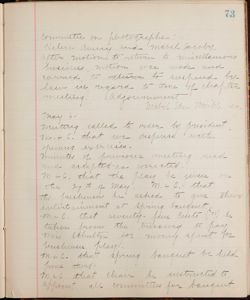 73
Committee on photographs:
Helen and Mabel
After motion to return to miscellaneous
business motion was made and
carried to return to suspend by
laws in regard to time of chapter
meeting. Adjournment.
May 6.
Meeting called to order by president.
M. & C. that we dispense with
opening exercises.
Minutes of previous meeting read
and accepted as corrected.
M. & C. that the play be given on
the 29th of May. M. & C. that
the freshmen be asked to give their
entertainment at Spring banquet.
M. & C. that seventy-five cents be
taken from the treasury to pay
Miss for money spent for
freshman play.
M. & C. that spring banquet be held
M. & C. that chair be instructed to
appoint all committees for banquet